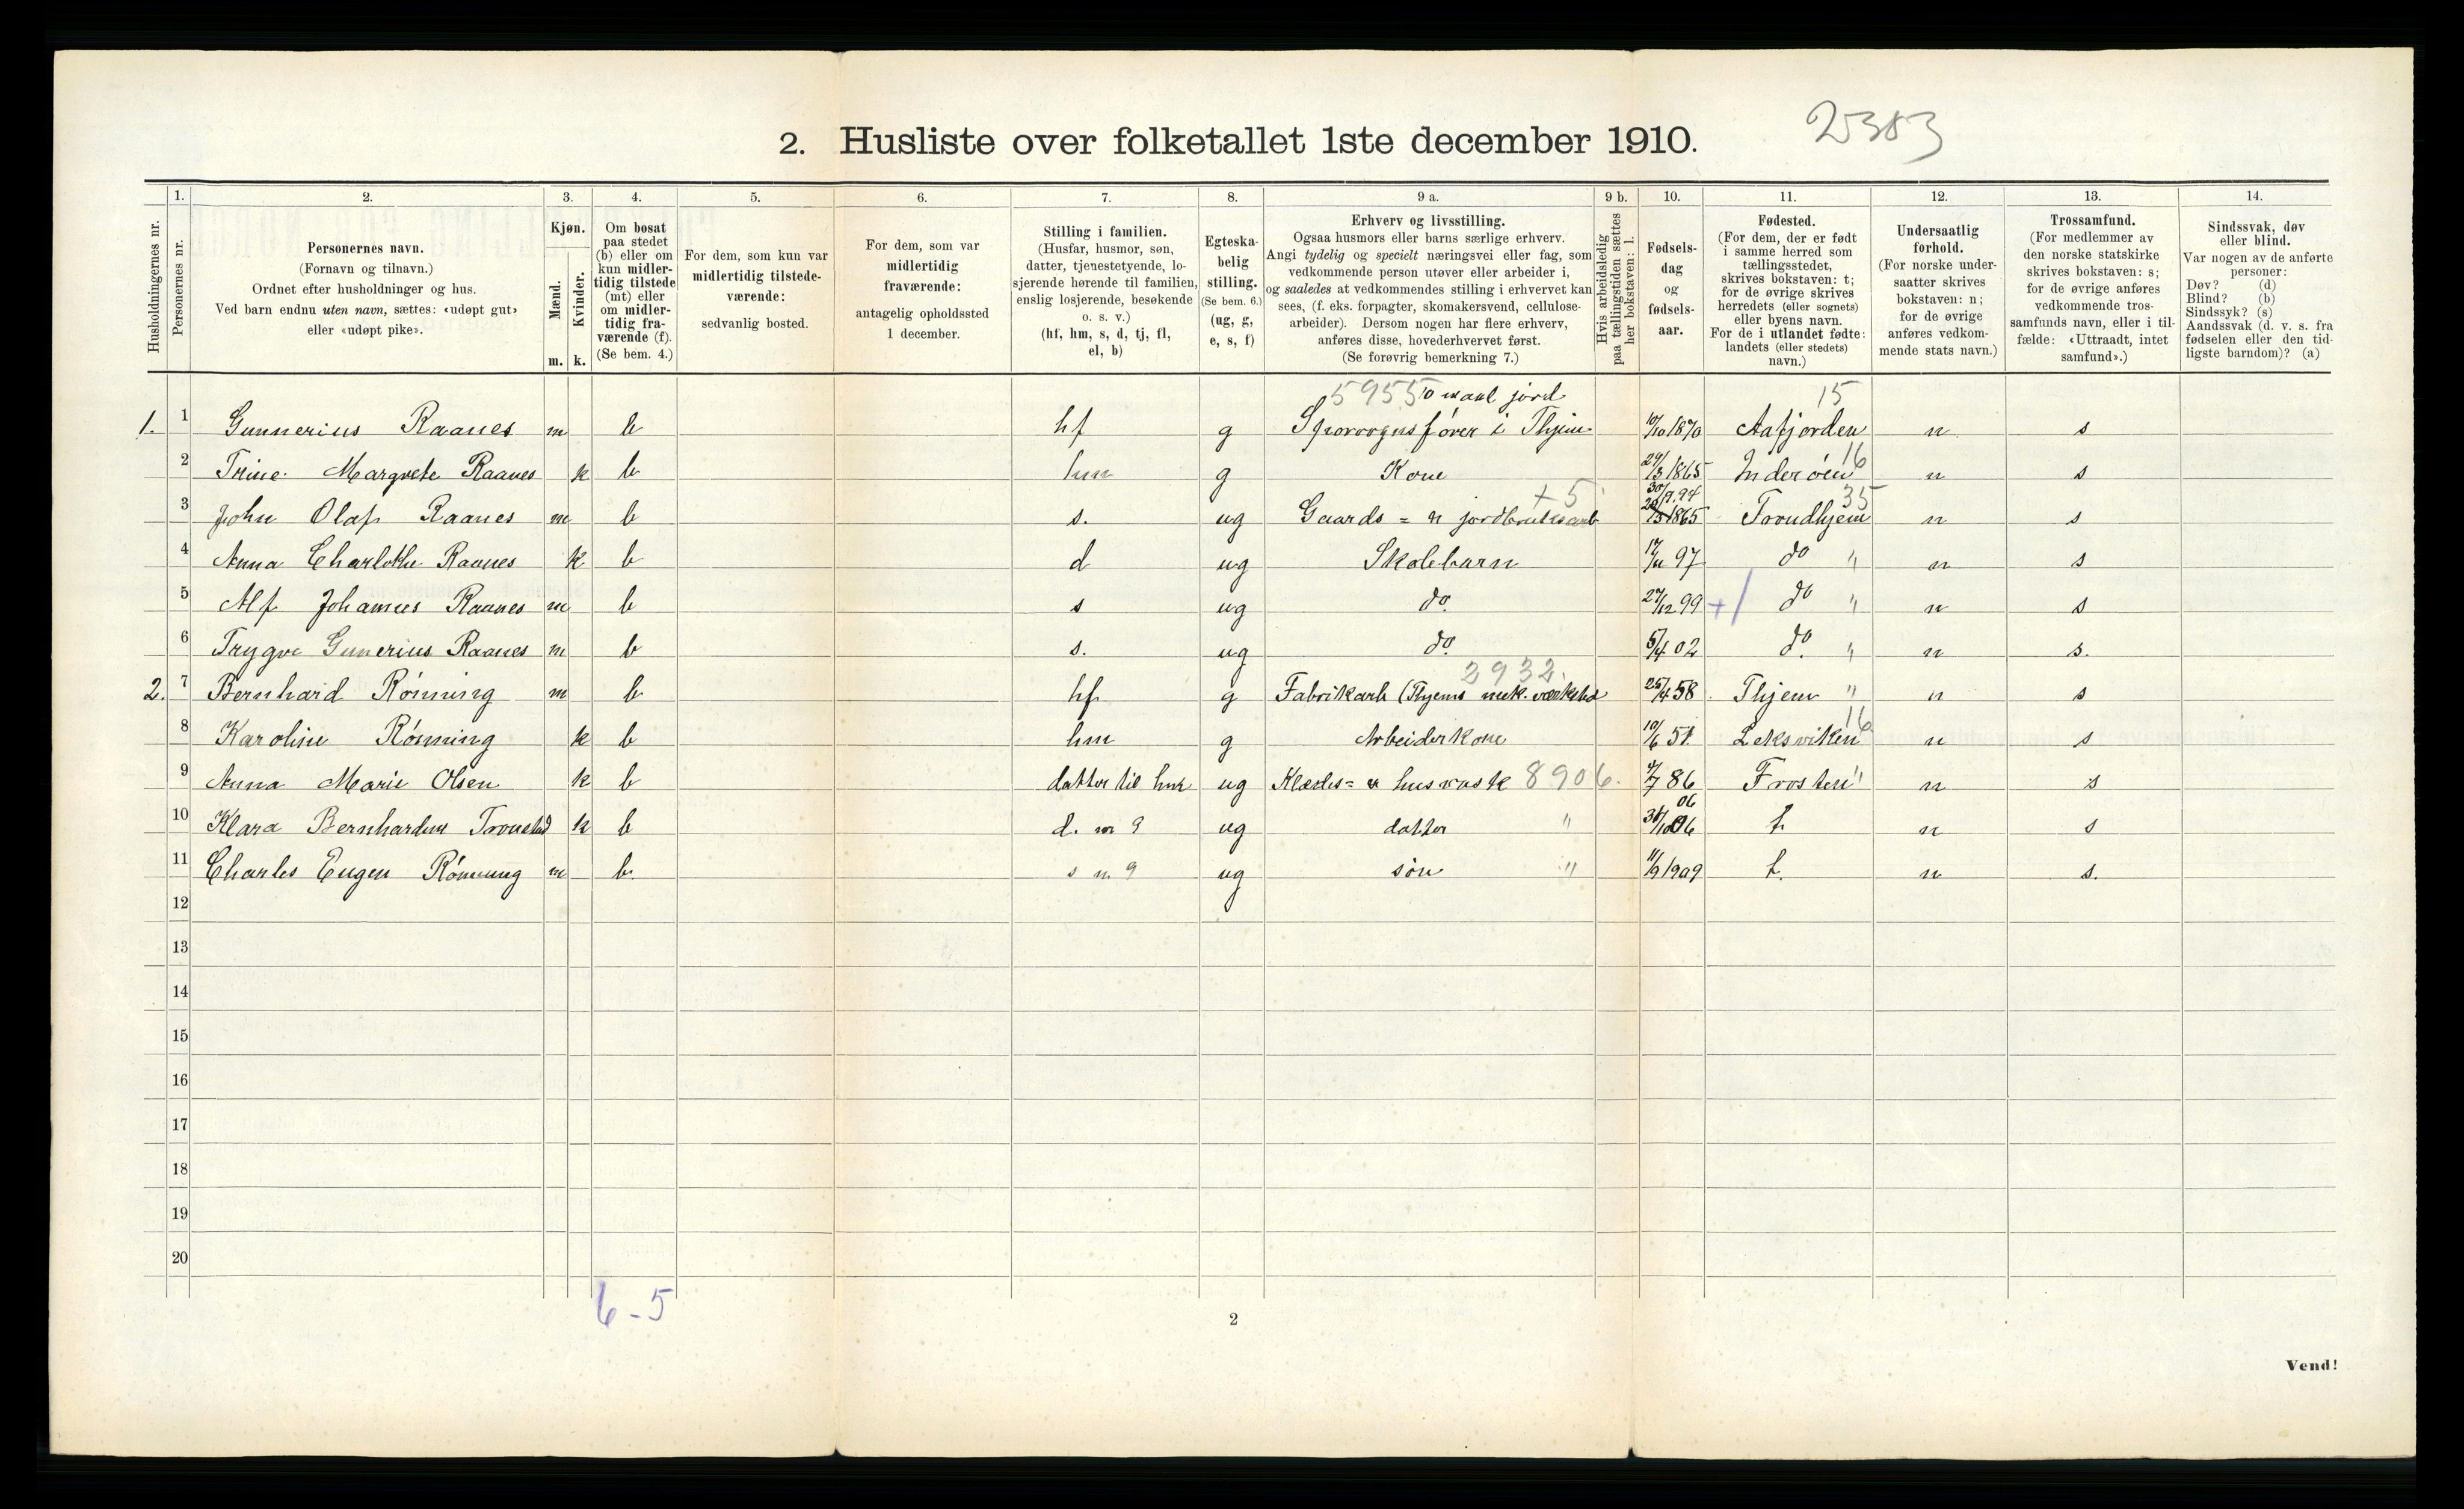 2. Husliste over folketallet 1ste december 1910. 2383
Husholdningernes nr.
1. Personernes nr.
2. Personernes navn. (Fornavn og tilnavn.) Ordnet efter husholdninger og hus. Ved barn endnu uten navn, sættes: «udøpt gut» eller «udøpt pike».
3. Kjøn. Mænd. m. Kvinder. k.
4. Om bosat paa stedet (b) eller om kun midlertidig tilstede (mt) eller om midlertidig fraværende (f). (Se bem. 4.)
5. For dem, som kun var midlertidig tilstedeværende: sedvanlig bosted.
6. For dem, som var midlertidig fraværende: antagelig opholdssted 1 december.
7. Stilling i familien. (Husfar, husmor, søn, datter, tjenestetyende, losjerende hørende til familien, enslig losjerende, besøkende o. s. v.) (hf, hm, s, d, tj, fl, el, b)
8. Egteskabelig stilling. (Se bem. 6.) (ug, g, e, s, f)
9 a. Erhverv og livsstilling. Ogsaa husmors eller barns særlige erhverv. Angi tydelig og specielt næringsvei eller fag, som vedkommende person utøver eller arbeider i, og saaledes at vedkommendes stilling i erhvervet kan sees, (f. eks. forpagter, skomakersvend, cellulosearbeider). Dersom nogen har flere erhverv, anføres disse, hovederhvervet først. (Se forøvrig bemerkning 7.)
9 b. Hvis arbeidsledig paa tællingstiden sættes her bokstaven: l.
10. Fødselsdag og fødselsaar.
11. Fødested. (For dem, der er født i samme herred som tællingsstedet, skrives bokstaven: t; for de øvrige skrives herredets (eller sognets) eller byens navn. For de i utlandet fødte: landets (eller stedets) navn.)
12. Undersaatlig forhold. (For norske undersaatter skrives bokstaven: n; for de øvrige anføres vedkommende stats navn.)
13. Trossamfund. (For medlemmer av den norske statskirke skrives bokstaven: s; for de øvrige anføres vedkommende trossamfunds navn, eller i tilfælde: «Uttraadt, intet samfund».)
14. Sindssvak, døv eller blind. Var nogen av de anførte personer: Døv? (d) Blind? (b) Sindssyk? (s) Aandssvak (d. v. s. fra fødselen eller den tidligste barndom)? (a)
5955 10 maal jord 15
1. 1 Gunnerius Raanes m b hf g Sporvognsfører i Thjem 10/10 1870 Aafjorden n s
2 Trine Margrete Raanes k b hm g Kone 29/3 1865 Inderøen 16 n s
+5 30/9.94 35
3 John Olaf Raanes m b s. ug Gaards= & jordbruksarb 1865 Trondhjem n s
4 Anna Charlothe Raanes k b d ug Skolebarn 97 do " n s
5 Alf Johannes Raanes m b s ug do. 27/12 99 + do " n s
6 Trygve Gunerius Raanes m b s. ug do. 5/4 02 do. " n s.
2932.
2. 7 Bernhard Rønning m b hf g Fabrikarb (Thjems mek. værksted 25/4 58. Thjem " n s
8 Karoline Rønning k b hm g Arbeiderkone 10/6 51. Leksviken 16 n s
9 Anna Marie Olsen k b datter til hm ug Klædes= & husvask 8906. 4/7 86 Frosten " n s
06
10 Klara Bernhardine Tronstad k b d. m 9 ug datter " t. n s
11 Charles Eugen Rønning m b. s m 9 ug søn " 11/9 1909 t. n s.
12
13
14
15
16
17
18
19
20
6-5
2
Vend!